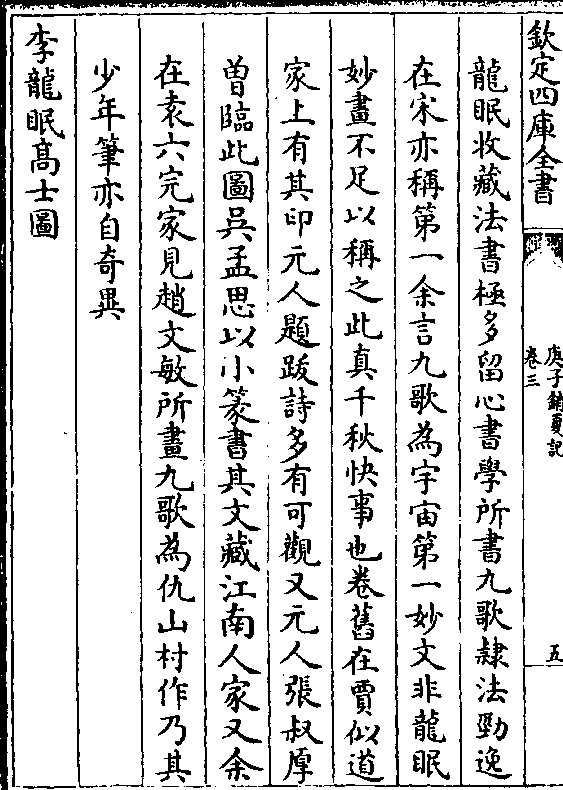 欽定四庫全書
庚子銷夏記
卷三
五
龍眠收藏法書極多留心書學所書九歌隸法勁逸
在宋亦稱第一余言九歌為宇宙第一妙文非龍眠
妙畫不足以稱之此真千秋快事也卷舊在賈似道
家上有其印元人題跋詩多有可觀又元人張叔厚
曽臨此圖吳孟思以小篆書其文藏江南人家又余
在袁六完家見趙文敏所畫九歌為仇山村作乃其
少年筆亦自奇異
李龍眠髙士圖